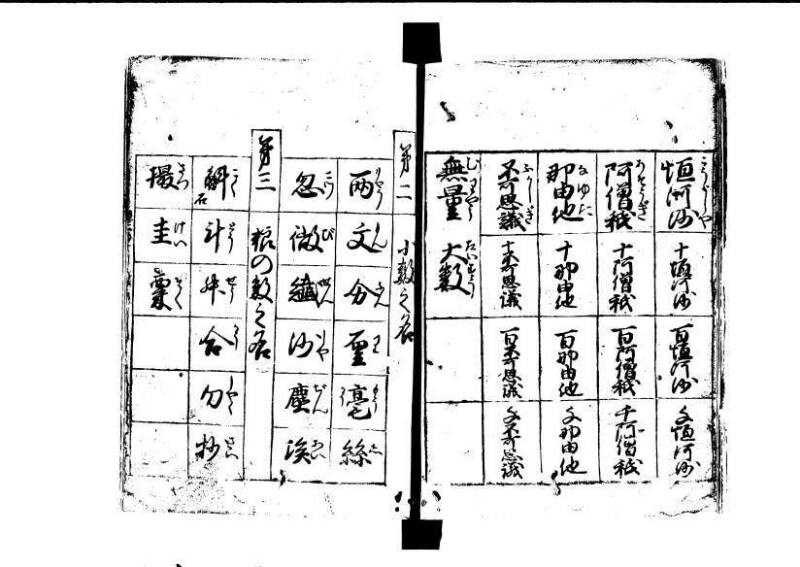 恒河沙 十恒河沙 百恒河沙 千恒河沙
阿僧祇 十阿僧祇 百阿僧祇 千阿僧祇
那由他 十那由他 百那由他 千那由他
不可思議 十不可思議 百不可思議 千不可思議
無量 大数
第二 小数之名
両 文 分 厘 毫 絲
忽 微 纖 沙 塵 埃
第三 粮の数之名
斛 石 斗 升 合 勺 抄
撮 圭 粟